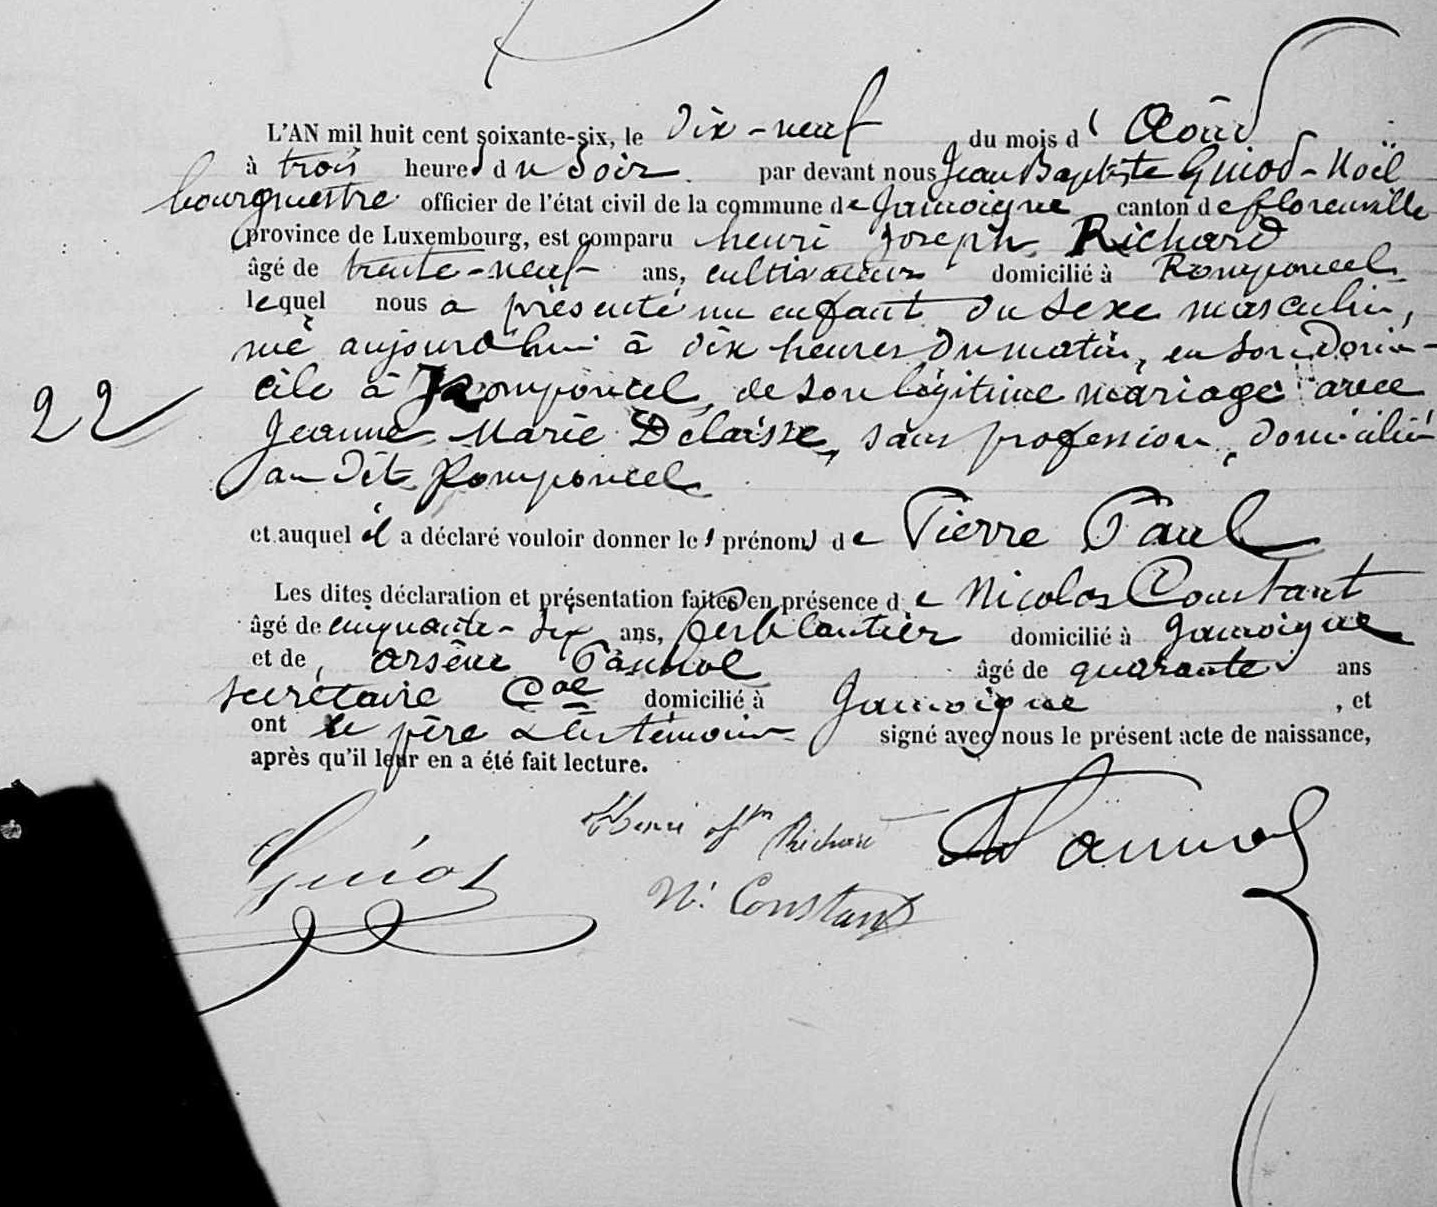 L'AN mil huit cent soixante-six, le dix-neuf du mois d' Août
à trois heures du Soir par devant nous Jean Baptiste Guiot-Noël
bourgmestre officier de l'état civil de la commune de Jamoigne canton de florenville
province de Luxembourg, est comparu henri joseph Richard
âgé de trente-neuf ans, cultivateur domicilié à Romponcel
lequel nous a présenté un enfant du sexe masculin,
né aujourd'hui à dix heures du matin, en son domi-
cile à Romponcel, de son légitime mariage avec
22
Jeanne Marie Delaisse, sans profession, domiciliée
au dit Romponcel
et auquel il a déclaré vouloir donner les prénoms de Pierre Paul
Les dites déclaration et présentation faites en présence de Nicolas Constant
âgé de cinquante-six ans, ferblantier domicilié à Jamoigne
et de, arsène Pannol âgé de quarante ans
secrétaire Coal domicilié à Jamoigne, et
ont le père & les témoins signé avec nous le présent acte de naissance,
après qu'il leur en a été fait lecture.
Guiot Henri Richard Pannol
N. Constant